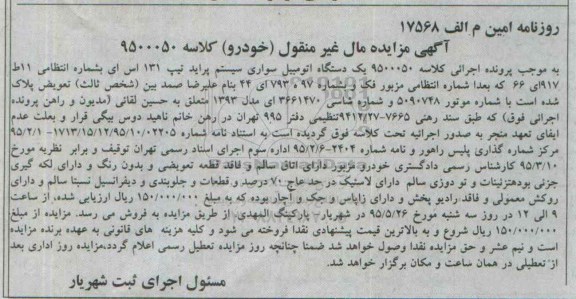 روزنامه امین م الف ۱۷۵۶۸
آگهی مزایده مال غیر منقول (خودرو) کلاسه ۹۵۰۰۰۵۰
به موجب پرونده اجرائی کلاسه ۹۵۰۰۰۵۰ یک دستگاه اتومبیل سواری سیستم پراید تیپ ۱۳۱ اس ای بشماره انتظامی ۱۱ط
۹۱۷ای ۶۶ که بعدا شماره انتظامی مزبور فک و بشماره ۹۷ ه ۷۹۳ ای ۴۴ بنام علیرضا صمد بین (شخص ثالث) تعویض پلاک
شده است با شماره موتور ۵۰۹۰۷۴۸ و شماره شاسی ۳۶۶۱۴۷۰ ای مدل ۱۳۹۳ متعلق به حسین لقائی (مدیون و راهن پرونده
اجرائی فوق) که طبق سند رهنی ۷۶۶۵-۹۴۱۲/۲۷ تنظیمی دفتر ۹۹۵ تهران در رهن خانم ناهید دوس بیگی قرار و بعلت عدم
ایفای تعهد منجر به صدور اجرائیه تحت کلاسه فوق گردیده است به استناد نامه شماره ۱۷۱۳/۱۵/۱۲/۹۵/۱۰/۲۲۰۵- ۹۵/۲/۱
مرکز شماره گذاری پلیس راهور و نامه شماره ۲۴۰۴-۹۵/۲/۶ اداره سوم اجرای اسناد رسمی تهران توقیف و برابر نظریه مورخ
۹۵/۳/۱۰ کارشناس رسمی دادگستری خودرو مزبور دارای اتاق سالم و فاقد قطعه تعویضی و بدون رنگ و دارای لکه گیری
جزئی بودهتزئینات و تو دوزی سالم دارای لاستیک در حد عاج ۷۰ درصد و قطعات و جلوبندی و دیفرانسیل نسبتا سالم و دارای
روکش معمولی و فاقد رادیو پخش و دارای زاپاس و جک و آچار بوده که به مبلغ ۱۵۰/۰۰۰/۰۰۰ ریال ارزیابی شده، از ساعت
۹ الی ۱۲ در روز سه شنبه مورخ ۹۵/۵/۲۶ در شهریار - پارکینگ المهدی از طریق مزایده به فروش می رسد. مزایده از مبلغ
۱۵۰/۰۰۰/۰۰۰ ریال شروع و به بالاترین قیمت پیشنهادی نقدا فروخته می شود و کلیه هزینه های قانونی به عهده برنده مزایده
است و نیم عشر و حق مزایده نقدا وصول خواهد شد ضمنا چنانچه روز مزایده تعطیل رسمی اعلام گردد،مزایده روز اداری بعد
از تعطیلی در همان ساعت و مکان برگزار خواهد شد.
مسئول اجرای ثبت شهریار